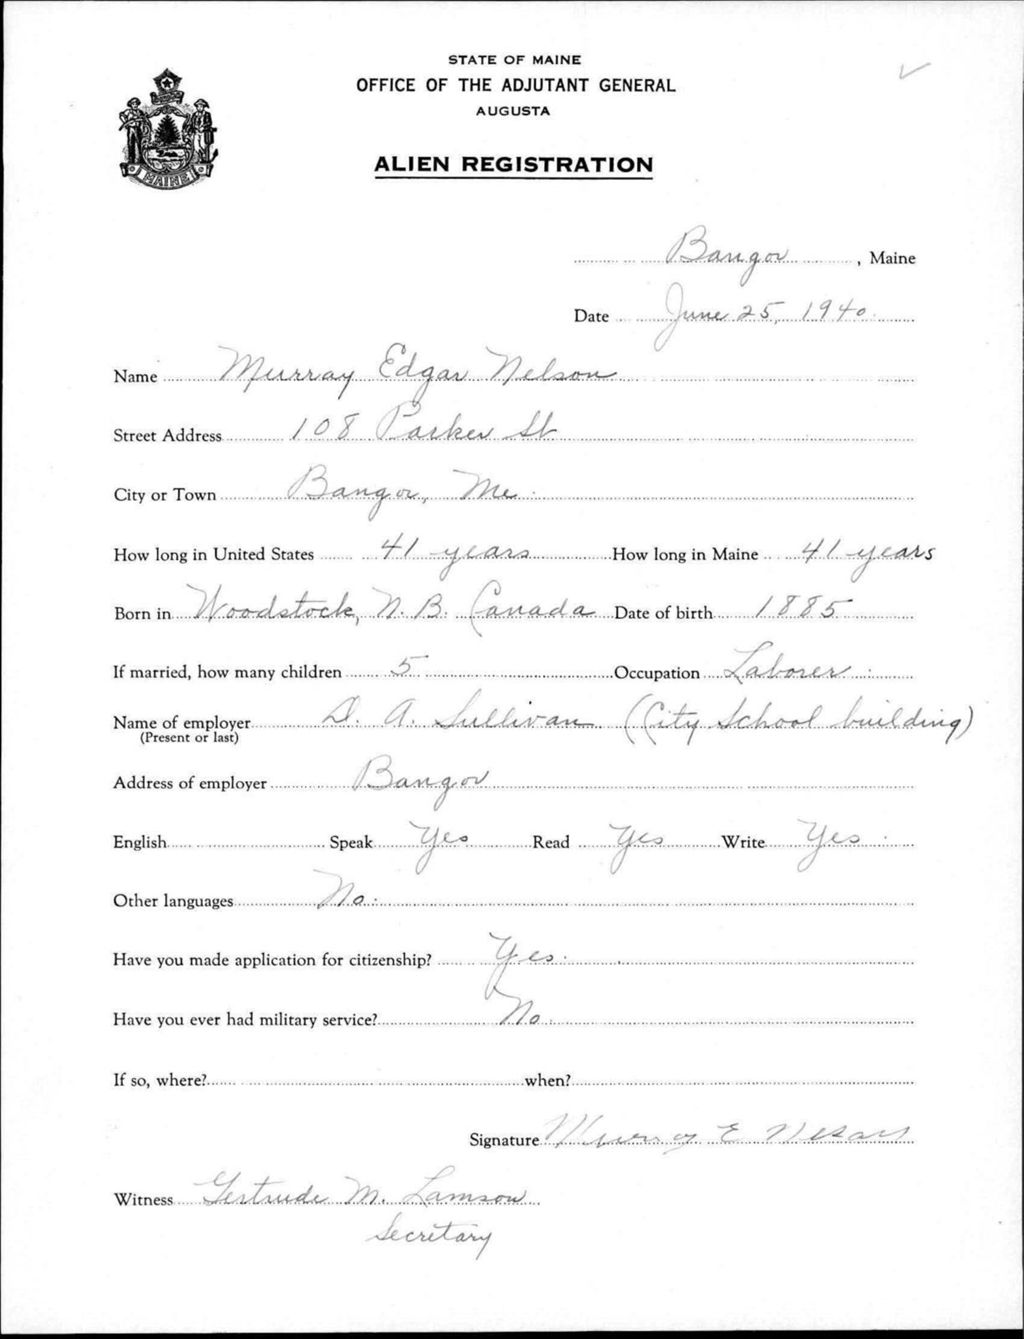 STATE OF MAINE
OFFICE OF THE ADJUTANT GENERAL
AUGUSTA
MAINE
ALIEN REGISTRATION
Bangor, Maine
Date June 25, 1940
Name Murray Edgar Nelson
Street Address 108 Parker St
City or Town Bangor, Me.
How long in United States 41 years How long in Maine 41 years
Born in Woodstock, N. B. Canada Date of birth 1885
If married, how many children 5 Occupation Laborer
Name of employer D. A. Sullivan (City School building)
(Present or last)
Address of employer Bangor
English Speak Yes Read Yes Write Yes
Other languages No
Have you made application for citizenship? Yes
Have you ever had military service? No
If so, where? when?
Signature Murray E Nelson
Witness Gertrude M. Lamson
Secretary